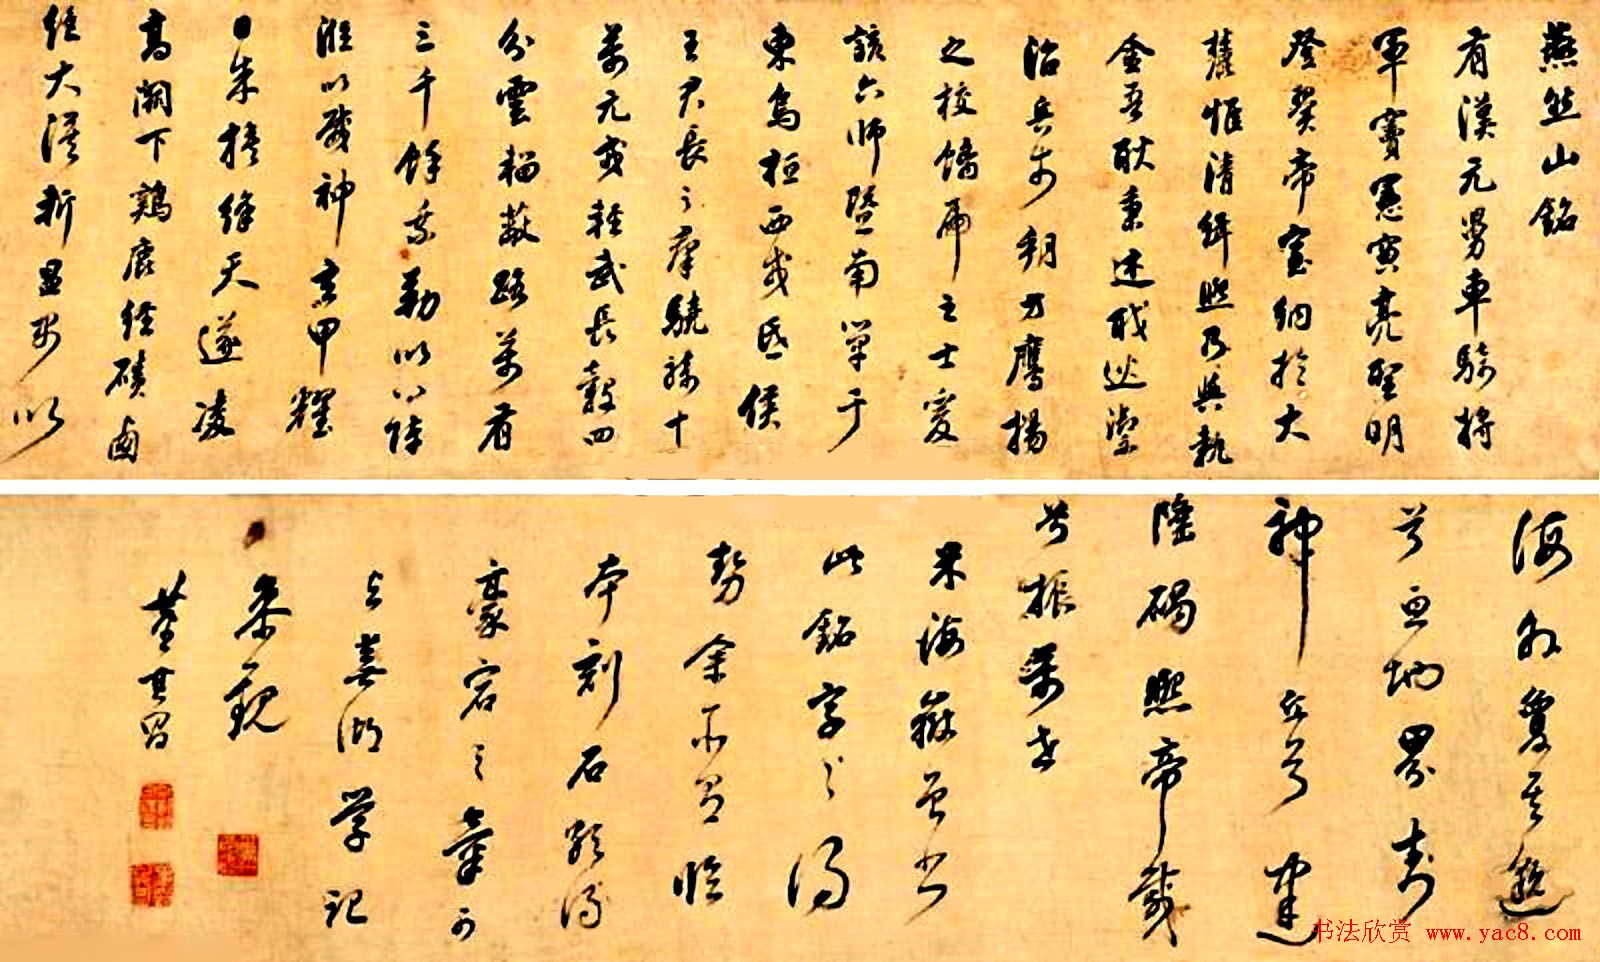 燕然山銘
有漢元舅車騎將
軍竇憲寅亮聖明
登翼帝室納於大
麓惟清緝熙乃與執
金吾耿秉述職巡禦
治兵於朔方鷹揚
之校螭虎之士爰
該六師暨南單于
東烏桓西戎氐侯
王君長之群驍騎十
萬元戎輕武長轂四
分雲輜蔽路萬有
三千餘乘勒以八陣
蒞以威神玄甲耀
日朱旗絳天遂凌
高闕下雞鹿經磧鹵
絕大漠斬溫禺以
海外敻其邈
兮亘地界封
神丘兮建
隆碣熙帝載
兮振萬世
米海嶽曾書
此銘字字得
勢余亦臨
本刻石頗得
豪宕之氣可
與蕪湖學記
參觀
董其昌
书法欣赏 www.yac8.com